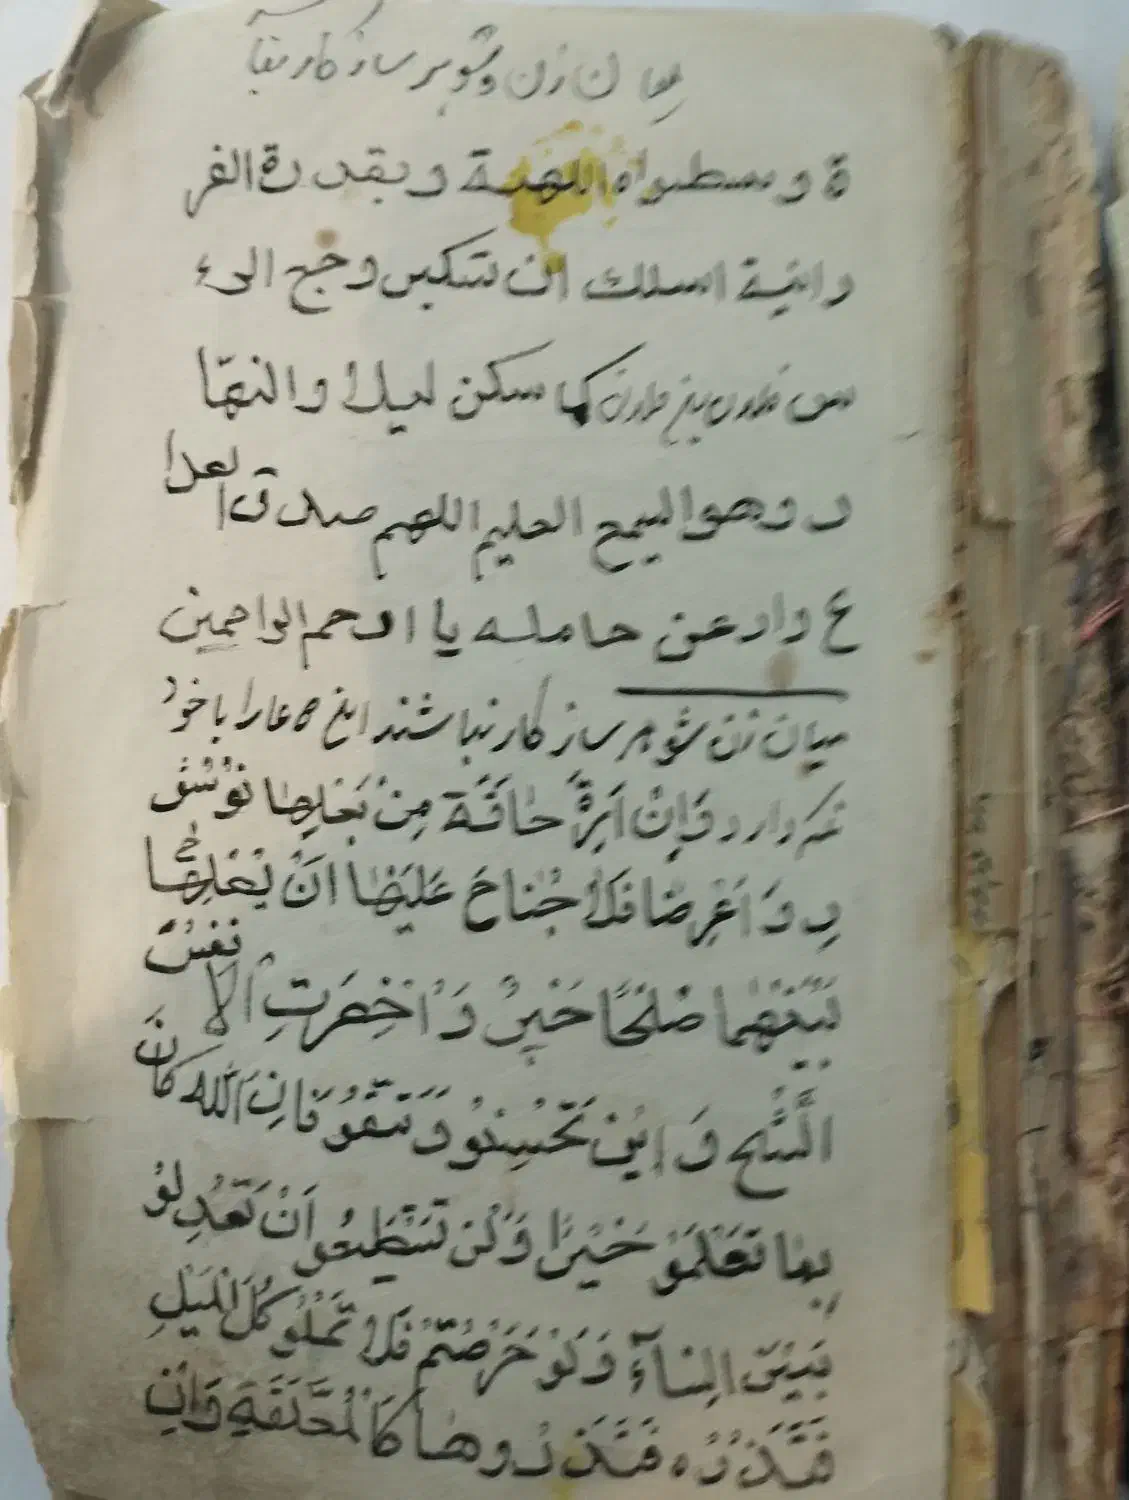 میان زن وشوهر ساز کار نبا
ة وسطواة اللهية و بقدرة الفر
دانية اسلك ان تسكين وجع الرء
س فلان بن فلان كما سكن ليلا والنها
ر وهو السمع العليم اللهم صدق العدا
ع وادعن حامله يا ارحم الراحمين
میان زن شوهر ساز کار نباشند این دعا را با خود
وَاِنْ اَمِرْةً خافَةً مِنْ بَعْلِها نُوْشُو
وَ اَعْرِضا فَلا جُناحَ عَلَيْها اَنْ يُصْلِحا
بَيْنَهُما صُلْحًا خَيْرٌ وَ اُحْضِرَتِ الا نفس
الشُّحَ وَ اِنْ تُحْسِنُو وَ تَتَّقُو فَاِنَ الله كانَ
بِما تَعْلَمُو خَيْرًا وَلَنْ تَسْتَطِيعُو اَنْ تَعْدِلُو
بَيْنَ النِساءِ وَلَوْ حَرَصْتُمْ فَلا تَمِلُو كُلَ الْمَيْلِ
فَتَذَرُوها كَالْمُعَلَقَةِ وَاِنْ